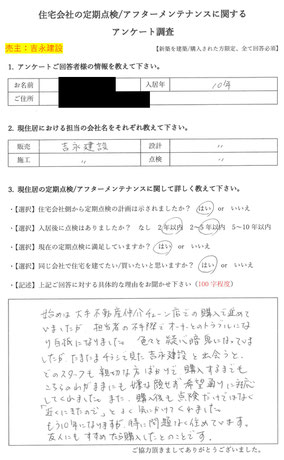 住宅会社の定期点検/アフターメンテナンスに関する
アンケート調査
売主：吉永建設
【新築を建築/購入された方限定、全て回答必須】
1. アンケートご回答者様の情報を教えて下さい。
お名前 入居年 10年
ご住所
2. 現住居における担当の会社名をそれぞれ教えて下さい。
販売 吉永建設 設計 〃
施工 〃 点検 〃
3. 現住居の定期点検/アフターメンテナンスに関して詳しく教えて下さい。
・【選択】住宅会社側から定期点検の計画は示されましたか？ はい or いいえ
・【選択】入居後に点検はありましたか？ なし 2年以内 2～5年以内 5～10年以内
・【選択】現在の定期点検に満足していますか？ はい or いいえ
・【選択】同じ会社で住宅を建てたい/買いたいと思いますか？ はい or いいえ
・【記述】上記ご回答に対する具体的な理由をお聞かせ下さい（100字程度）
始めは大手不動産仲介チェーン店での購入で進めて
いましたが 担当者の不手際でオーナーとのトラブルにな
り白紙になりました。色々と疑心暗鬼になっていま
したが、たまたまチラシで見た吉永建設と出会うと、
どのスタッフも親切な方ばかりで 購入するまでも
こちらのわがままにも嫌な顔せず希望通りに対応
してくれました。また、購入後も点検だけではなく
「近くにきたので」とよく気にかけてくれました。
もう10年になりますが 特に問題なく住めています。
友人にもすすめたら購入したとのことです。
ご協力頂きましてありがとうございました。